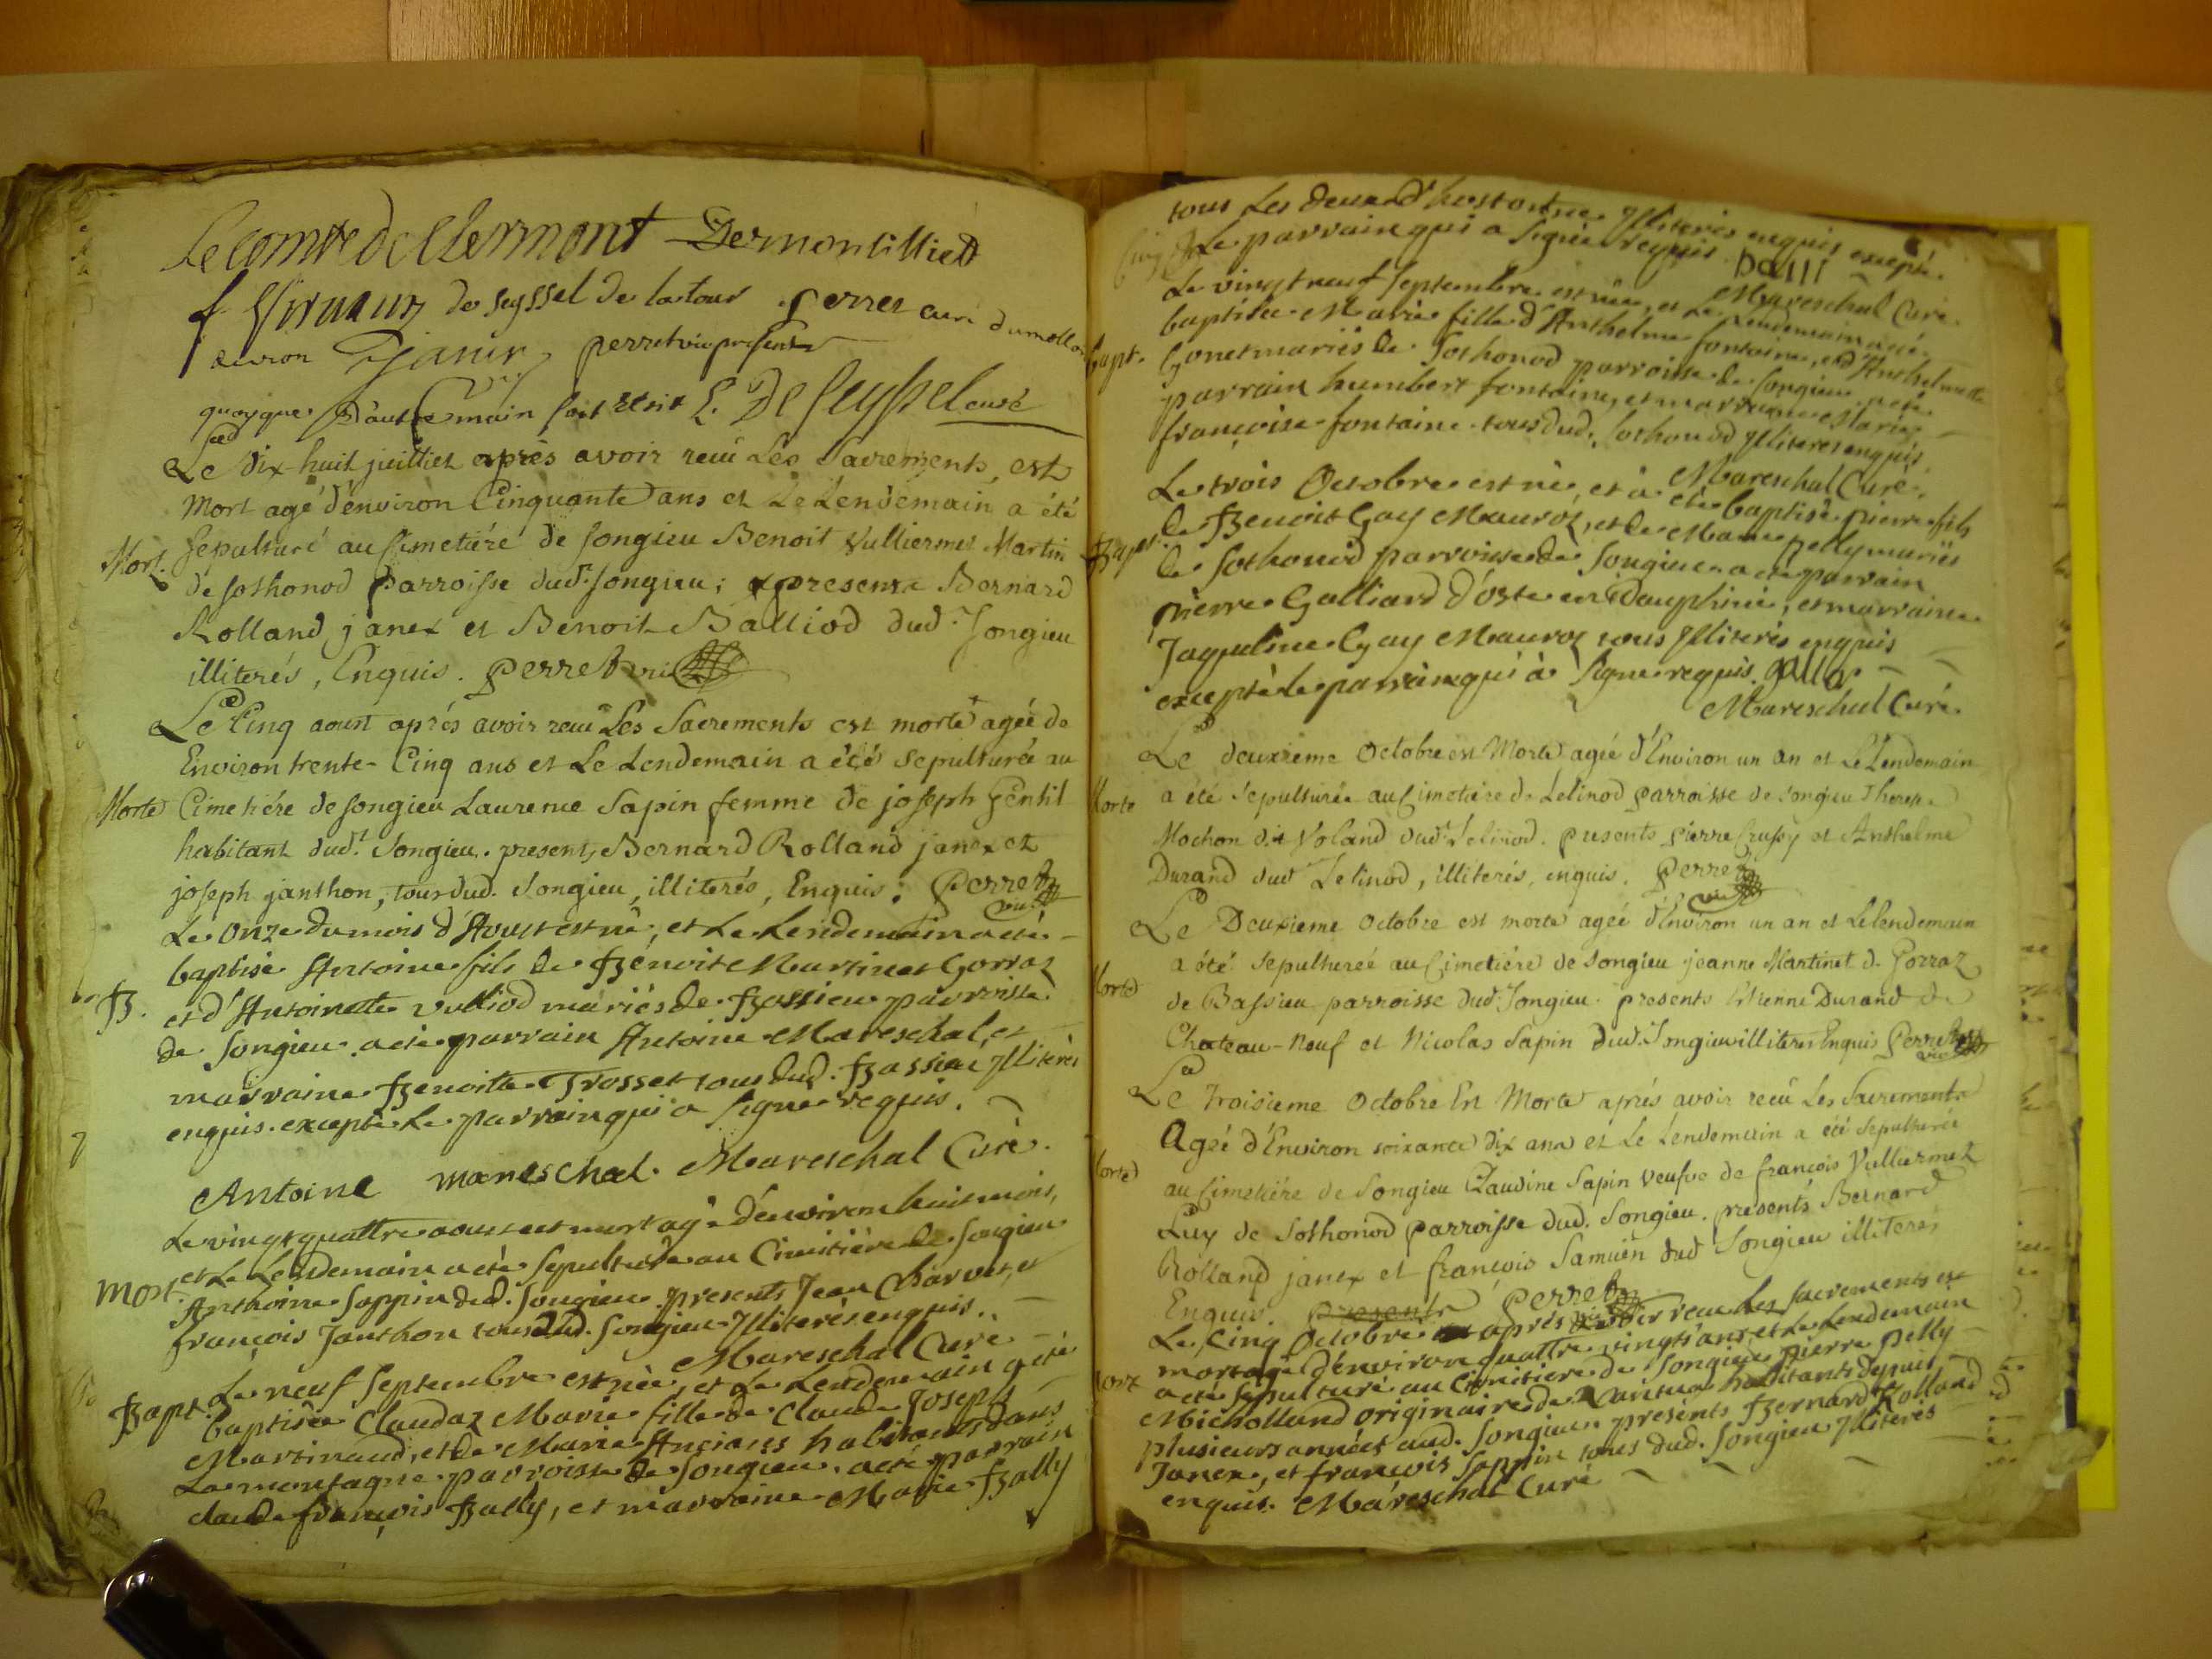 Le comte de Clermont Demontillied
f de seyssel de latour perret curé dumollar
Janin perret vic present
quoyque d'autre main soit écrit L. De Seyssel curé
Le dix-huit juilliet aprés avoir recu Les Sacrements, est
Mort agé d'énviron Cinquante ans et Le Lendemain a été
Mort. Sepulturé au Cimetiére de Songieu Benoit Vulliermet Martin
de Sothonod parroisse dud.t Songieu; presents Bernard
Rolland janex et Benoit Balliod dud.t Songieu
illiterés, Enquis. perret vic
Le Cinq aoust aprés avoir recu Les Sacrements est morte agée de
Environ trente-Cinq ans et Le Lendemain a été Sepulturée au
Morte Cimetiére de Songieu Laurence Sapin femme de joseph Gentil
habitant dud.t Songieu. present, Bernard Rolland janex et
joseph janthon, tous dud. Songieu, illiterés, Enquis; Perret
vic
Le Onze du mois d'Aoust est né, et Le Lendemain a eté
baptisé Antoine fils de Benoit Martinet Gorraz
B. et d'Antoinette vulliod mariés de Bassieu parroisse
de Songieu. a eté parrain Antoine Mareschal, et
marraine Benoite Trosset tous dud. Bassieu Illiterés
enquis. excepté Le parrain qui a signé requis.
Antoine mareschal. Mareschal Curé.
Le vingt quattre aoust est mort agé d'énviron huit mois,
et Le Lendemain a eté Sepulturé au Cimitiére de Songieu
Mort Anthoine Sappin dud. Songieu. presents Jean Charvet, et
françois Janthon tous dud. Songieu Illiterés enquis.
Mareschal Curé
Bapt. Le neuf Septembre est née, et Le Lendemain a eté
baptisée Claudaz Marie fille de Claude Joseph
Martinaud, et de Marie Ancians habitants dans
La montagne parroisse de Songieu. a eté parrain
claude françois Bally, et marraine Marie Bally
tous Les deux d'hostonne Illiterés enquis excepté
Le parrain qui a signé requis. balli
Mareschal Curé.
Le vingt neuf Septembre est née, et Le Lendemain a eté
baptisée Marie fille d'Anthelme fontaine, et d'Anthelmette
bapt. Gonet mariés de Sothonod parroisse de Songieu. a eté
parrain humbert fontaine, et marraine Marie
françoise fontaine tous dud. Sothonod Illiteres enquis.
Mareschal Curé.
Le trois Octobre est né, et a eté baptisé pierre fils
Bapt. de Benoit Gay Mauroz, et de Marie pelly mariés
de Sothonod parroisse de Songieu. a eté parrain
pierre Galliard d'oste en Dauphiné, et marraine
Jaqueline Gay Mauroz tous Illiterés enquis
excepté le parrain qui a signé requis.
Mareschal Curé.
Le deuxieme Octobre est Morte agée d'Environ un an et Le Lendemain
Morte a été Sepulturée au Cimetiére de Lelinod parroisse de Songieu Therese
Mochon dit Voland dud.t Lelinod. presents pierre Crussy et Anthelme
Durand dud.t Lelinod, illiterés, enquis. Perret
vic
Le Deuxieme Octobre est morte agée d'Environ un an et Le lendemain
a été Sepulturée au Cimetiére de Songieu jeanne Martinet d. Gorraz
Morte de Bassieu parroisse dud.t Songieu. presents Etienne Durand de
Chateau-neuf et Nicolas Sapin dud. Songieu illiteres Enquis Perret
vic
Le Troisieme Octobre En Morte aprés avoir recu Les Sacrements
Agée d'Environ soixante dix ans et Le Lendemain a été Sepulturée
Morte au Cimetiére de Songieu Claudine Sapin veufve de françois Vulliermet
Luy de Sothonod parroisse dud. Songieu. présents Bernard
Rolland janex et françois Samuën dud Songieu illiteres
Enquis. presents Perret vic
Le Cinq Octobre aprés avoir recu Les Sacrements est
mort agé d'énviron quattre vingts ans, et Le Lendemain
mort a eté Sepulturé au Cimitiere de Songieu pierre pelly
Micholland originaire de Nantua habitant depuis
plusieurs années aud. Songieu. présents Bernard Rolland
Janex, et françois Sappin tous dud. Songieu Illiterés
enquis. Mareschal Curé